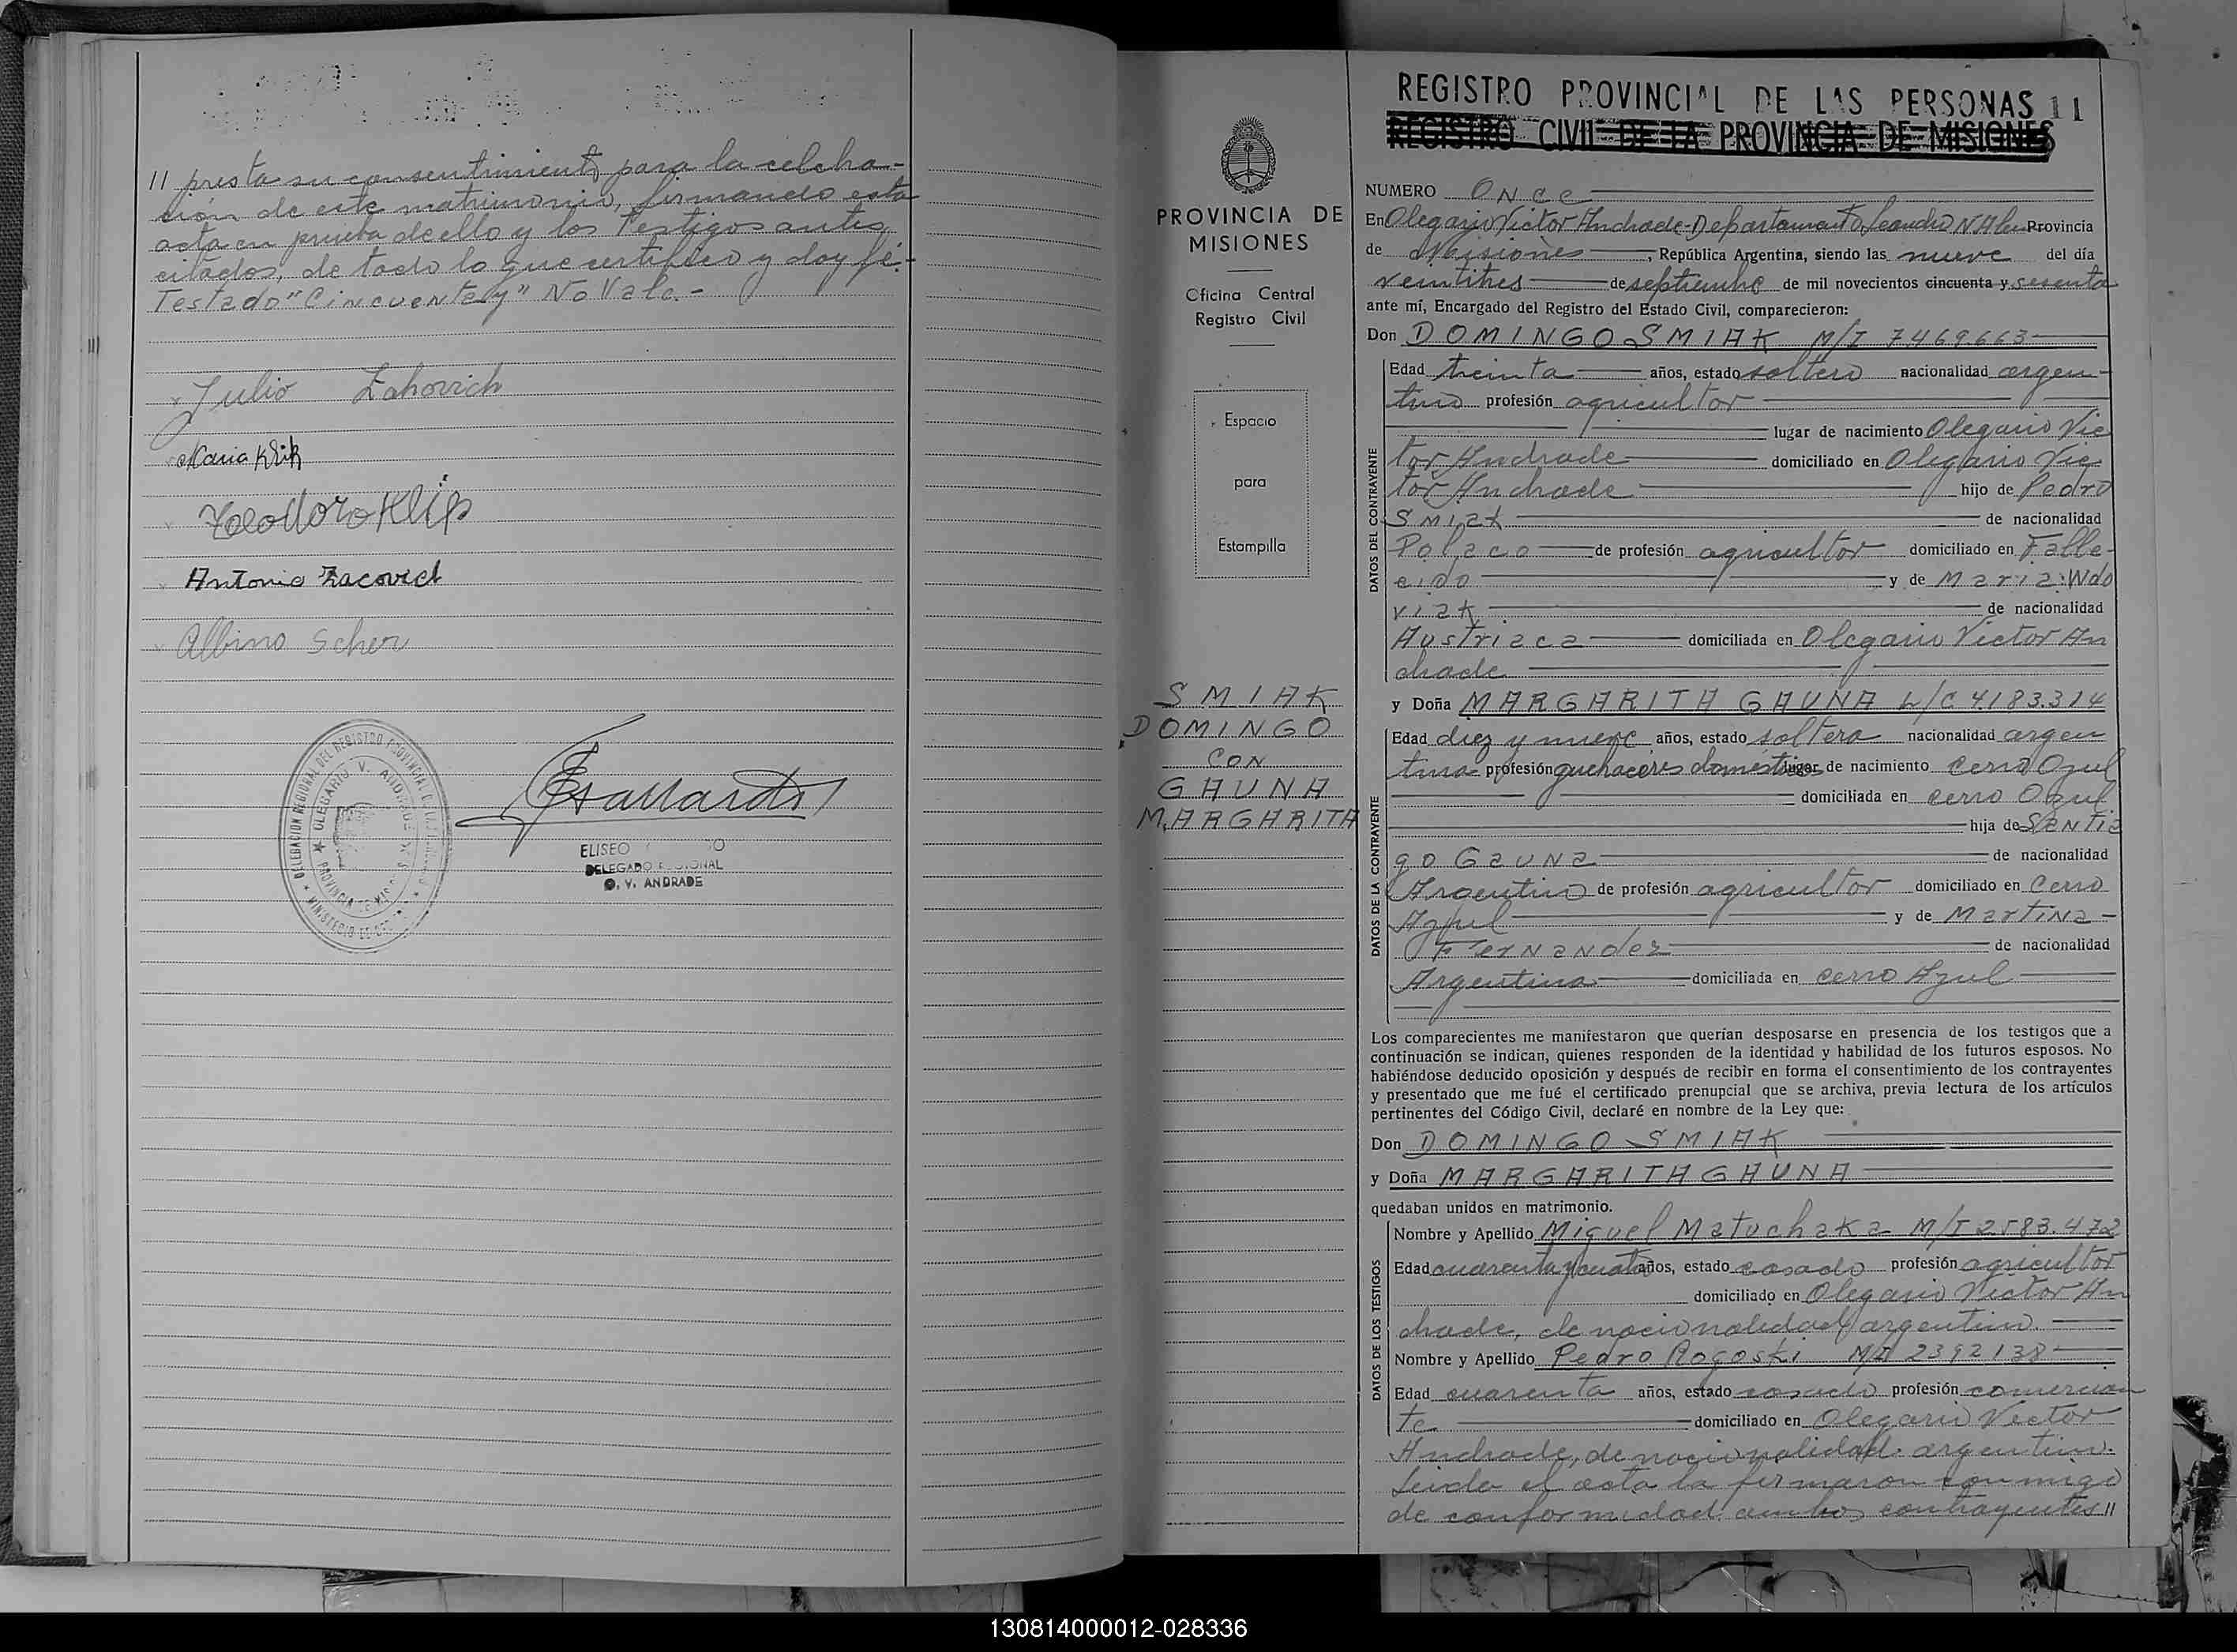 // presta su consentimiento para la celebra-
ción de este matrimonio, firmando esta
acta en prueba de ello y los Testigos antes
citados, de todo lo que certifico y doy fé.-
Testado "Cincuenta y" No Vale.-
Julio Zahovich
Maria Klik
Teodoro Klip
Antonio Zacovich
Albino Scher
DELEGACION REGIONAL DEL REGISTRO PROVINCIAL
OLEGARIO V. ANDRADE
PROVINCIA DE MIS
MINISTERIO
ELISEO
DELEGADO REGIONAL
O. V. ANDRADE
PROVINCIA DE
MISIONES
Oficina Central
Registro Civil
Espacio
para
Estampilla
SMIAK
DOMINGO
CON
GAUNA
MARGARITA
REGISTRO PROVINCIAL DE LAS PERSONAS 11
REGISTRO CIVIL DE LA PROVINCIA DE MISIONES
NUMERO ONCE
En Olegario Victor Andrade-Departamento Leandro N Alem Provincia
de Misiones, República Argentina, siendo las nueve del día
veintitres de septiembre de mil novecientos cincuenta y sesenta
ante mí, Encargado del Registro del Estado Civil, comparecieron:
Don DOMINGO SMIAK M/I 7469663
DATOS DEL CONTRAYENTE
Edad treinta años, estado soltero nacionalidad argen-
tino profesión agricultor
lugar de nacimiento Olegario Vic
tor Andrade domiciliado en Olegario Vic
tor Andrade hijo de Pedro
Smiak de nacionalidad
Polaco de profesión agricultor domiciliado en Falle-
cido y de Maria Wdo
viak de nacionalidad
Austriaca domiciliada en Olegario Victor An
drade
y Doña MARGARITA GAUNA L/C 4.183.314
DATOS DE LA CONTRAYENTE
Edad diez y nueve años, estado soltera nacionalidad argen
tina profesión quehaceres domésticos lugar de nacimiento Cerro Azul
domiciliada en Cerro Azul
hija de Santia
go Gauna de nacionalidad
Argentino de profesión agricultor domiciliado en Cerro
Azul y de Martina-
Fernandez de nacionalidad
Argentina domiciliada en Cerro Azul
Los comparecientes me manifestaron que querían desposarse en presencia de los testigos que a
continuación se indican, quienes responden de la identidad y habilidad de los futuros esposos. No
habiéndose deducido oposición y después de recibir en forma el consentimiento de los contrayentes
y presentado que me fué el certificado prenupcial que se archiva, previa lectura de los artículos
pertinentes del Código Civil, declaré en nombre de la Ley que:
Don DOMINGO SMIAK
y Doña MARGARITA GAUNA
quedaban unidos en matrimonio.
DATOS DE LOS TESTIGOS
Nombre y Apellido Miguel Matuchaka M/I 2583.472
Edad cuarenta y cuatro años, estado casado profesión agricultor
domiciliado en Olegario Victor An
drade, de nacionalidad argentino.
Nombre y Apellido Pedro Rogoski M/I 2392138
Edad cuarenta años, estado casado profesión comercian
te domiciliado en Olegario Victor
Andrade, de nacionalidad argentino.
Leida el acta la firmaron conmigo
de conformidad ambos contrayentes //
130814000012-028336